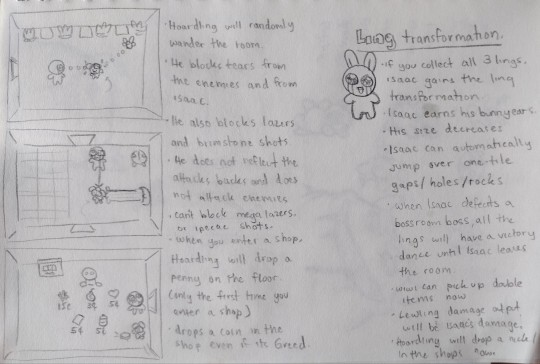 • Hoardling will randomly
wander the room.
• He blocks tears from
the enemies and from
isaac.
• He also blocks lazers
and brimstone shots
• He does not reflect the
attacks backs and does
not attack enemies
• can't block mega lazers
or shots.
• when you enter a shop,
Hoardling will drop a
penny on the floor.
(only the first time you
enter a shop)
• drops a coin in the
shop even if its Greed.
15¢
5¢
5¢
5¢
transformation.
• if you collect all 3 lings,
isaac gains the ling
transformation
• Isaac earns his bunny ears.
• His size decreases
• Isaac can automatically
jump over one-tile
gaps/holes/rocks
• when Isaac defeats a
bossroom boss, all the
lings will have a victory
dance until Isaac leaves
the room.
• wiwi can pick up double
items now
• damage output
will be Isaac's damage.
• Hoardling will drop a
in the shops now